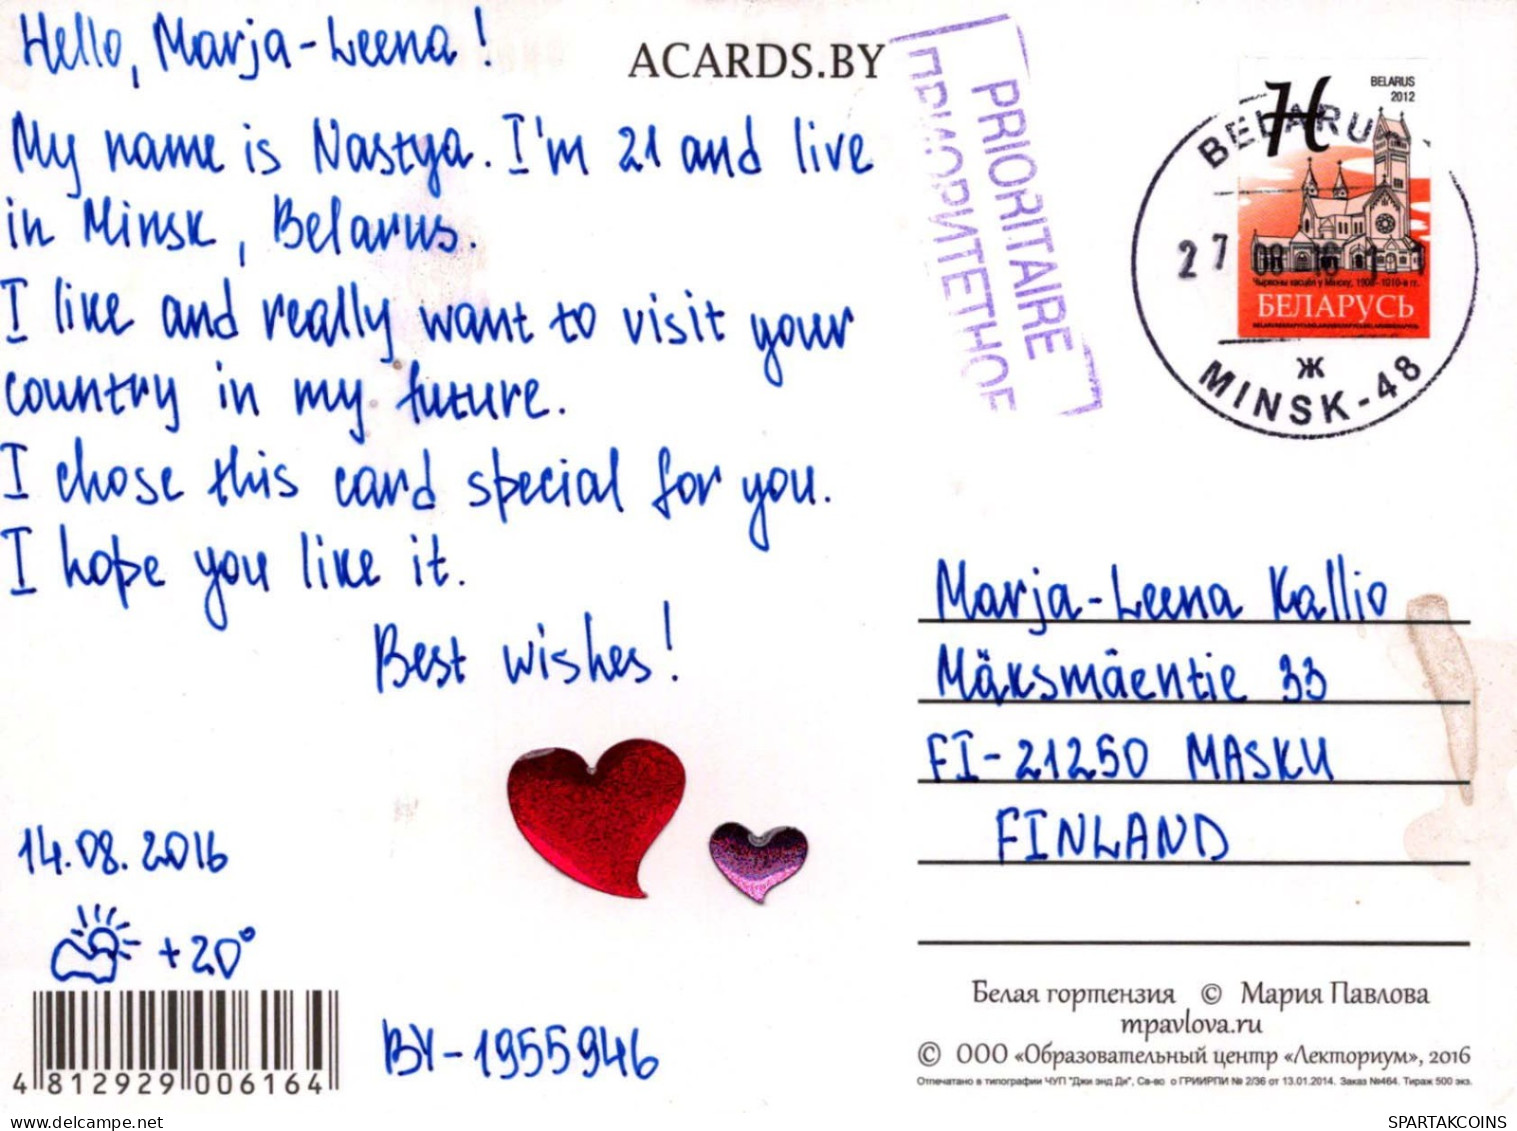 Hello, Marja-Leena!
My name is Nastya. I'm 21 and live
in Minsk, Belarus.
I like and really want to visit your
country in my future.
I chose this card special for you.
I hope you like it.
Best wishes!
14.08.2016
+20°
4 812929 006164
BY-1955946
ACARDS.BY
PRIORITAIRE
ПРИОРИТЕТНОЕ
H
BELARUS
2012
Чырвоны касцёл у Мінску, 1908-1910-я гг.
БЕЛАРУСЬ
BELARUS
27 08 16
ж
MINSK-48
Marja-Leena Kallio
Mäksmäentie 33
FI-21250 MASKU
FINLAND
Белая гортензия © Мария Павлова
mpavlova.ru
© ООО «Образовательный центр «Лекториум», 2016
Отпечатано в типографии ЧУП "Джи энд Ди", Св-во о ГРИИРПИ № 2/36 от 13.01.2014. Заказ №464. Тираж 500 экз.
www.delcampe.net
SPARTAKCOINS